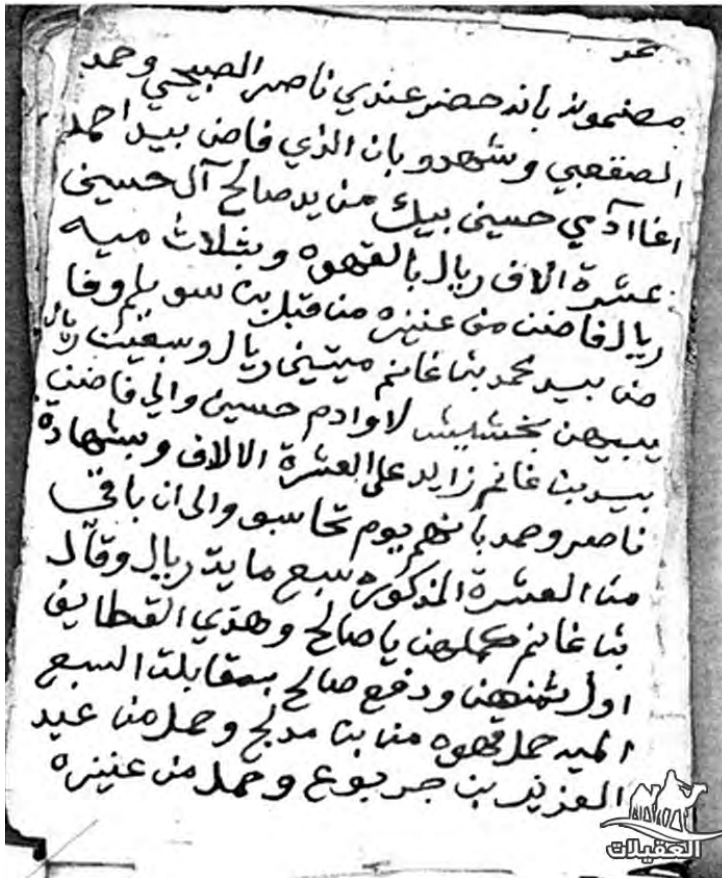 حمد
مضمونه بانه حضر عندي ناصر الصبيحي وحمد
الصقعبي وشهدو بان الذي فاض بيد احمد
اغا آدمي حسين بيك من يد صالح آل حسين
عشرة الاف ريال بالقهوه وبثلاث ميه
ريال فاضن من عنيزه من قبل بن سويلم وفا
ض بيد محمد بن غانم ميتين ريال وسبعين ريال
يبيهن بخشيش لاوادم حسين والي فاضن
بيد بن غانم زايد على العشرة الالاف وبشهادة
ناصر وحمد بانهم يوم تحاسبو والى ان باقي
من العشرة المذكوره سبع ماية ريال وقال
بن غانم كملهن يا صالح وهذي القطايف
اول ثمنهن ودفع صالح بمقابلة السبع
الميه حمل قهوه من بن مدلج وحمل من عبد
العزيز بن جربوع وحمل من عنيزه
العقيلات